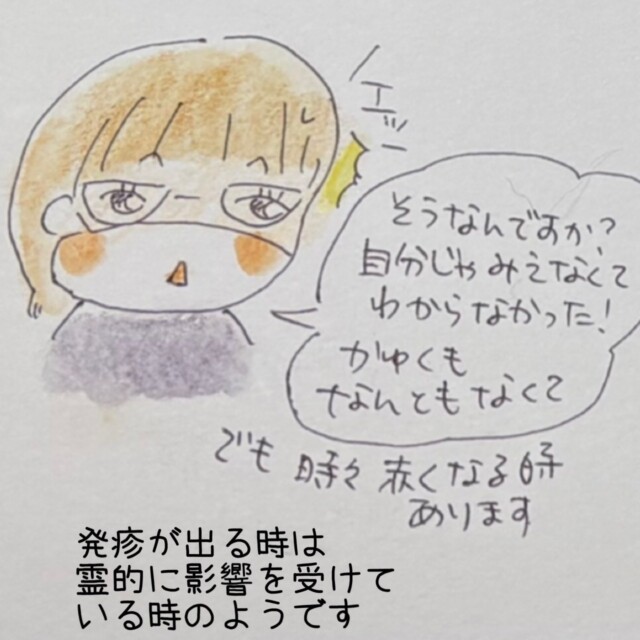 エッ
そうなんですか?
自分じゃみえなくて
わからなかった!
かゆくも
なんともなくて
でも 時々 赤くなる時
あります
発疹が出る時は
霊的に影響を受けて
いる時のようです